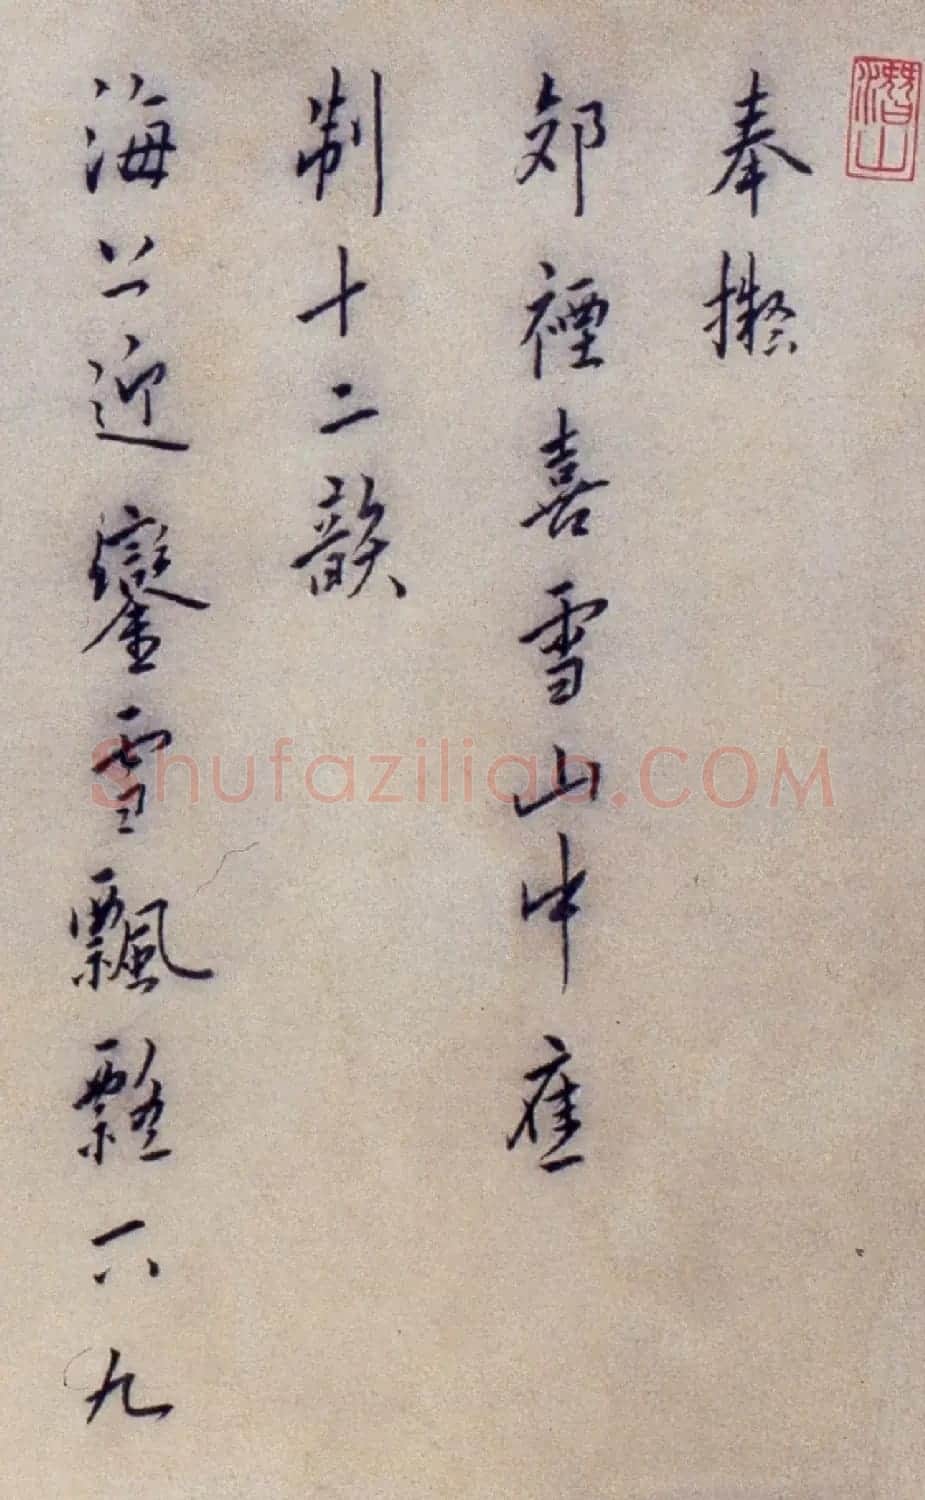 潛山
奉擬
郊禋喜雪山中應
制十二韻
海上迎鑾雪飄下九
Shufaziliao.COM